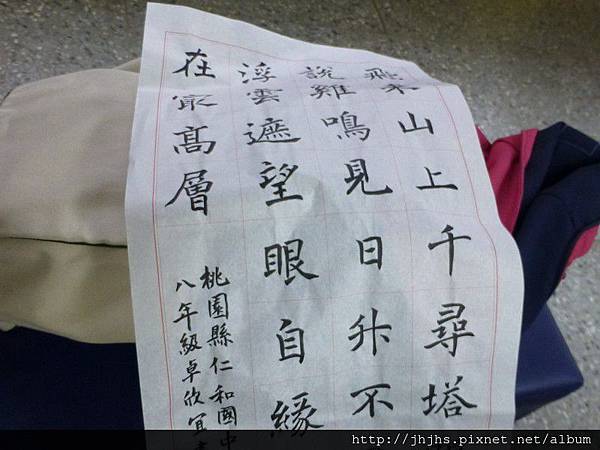 飛來山上千尋塔
說雞鳴見日升不
浮雲遮望眼自緣
在最髙層
桃園縣仁和國中
八年級卓欣宜
http://jhjhs.pixnet.net/album